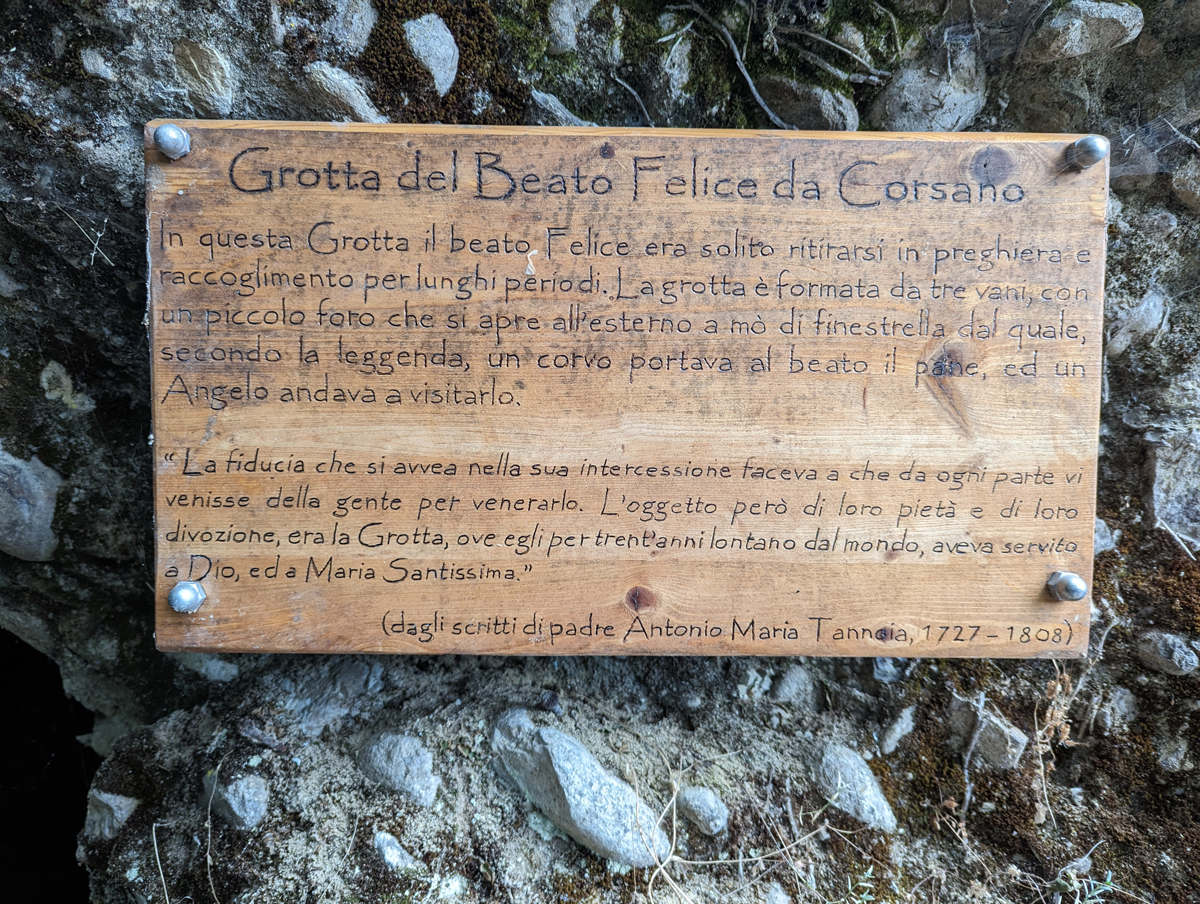 Grotta del Beato Felice da Corsano
In questa Grotta il beato Felice era solito ritirarsi in preghiera e
raccoglimento per lunghi periodi. La grotta è formata da tre vani, con
un piccolo foro che si apre all'esterno a mò di finestrella dal quale,
secondo la leggenda, un corvo portava al beato il pane, ed un
Angelo andava a visitarlo.
“La fiducia che si avvea nella sua intercessione faceva a che da ogni parte vi
venisse della gente per venerarlo. L'oggetto però di loro pietà e di loro
divozione, era la Grotta, ove egli per trent'anni lontano dal mondo, aveva servito
a Dio, ed a Maria Santissima.”
(dagli scritti di padre Antonio Maria Tannoia, 1727 – 1808)